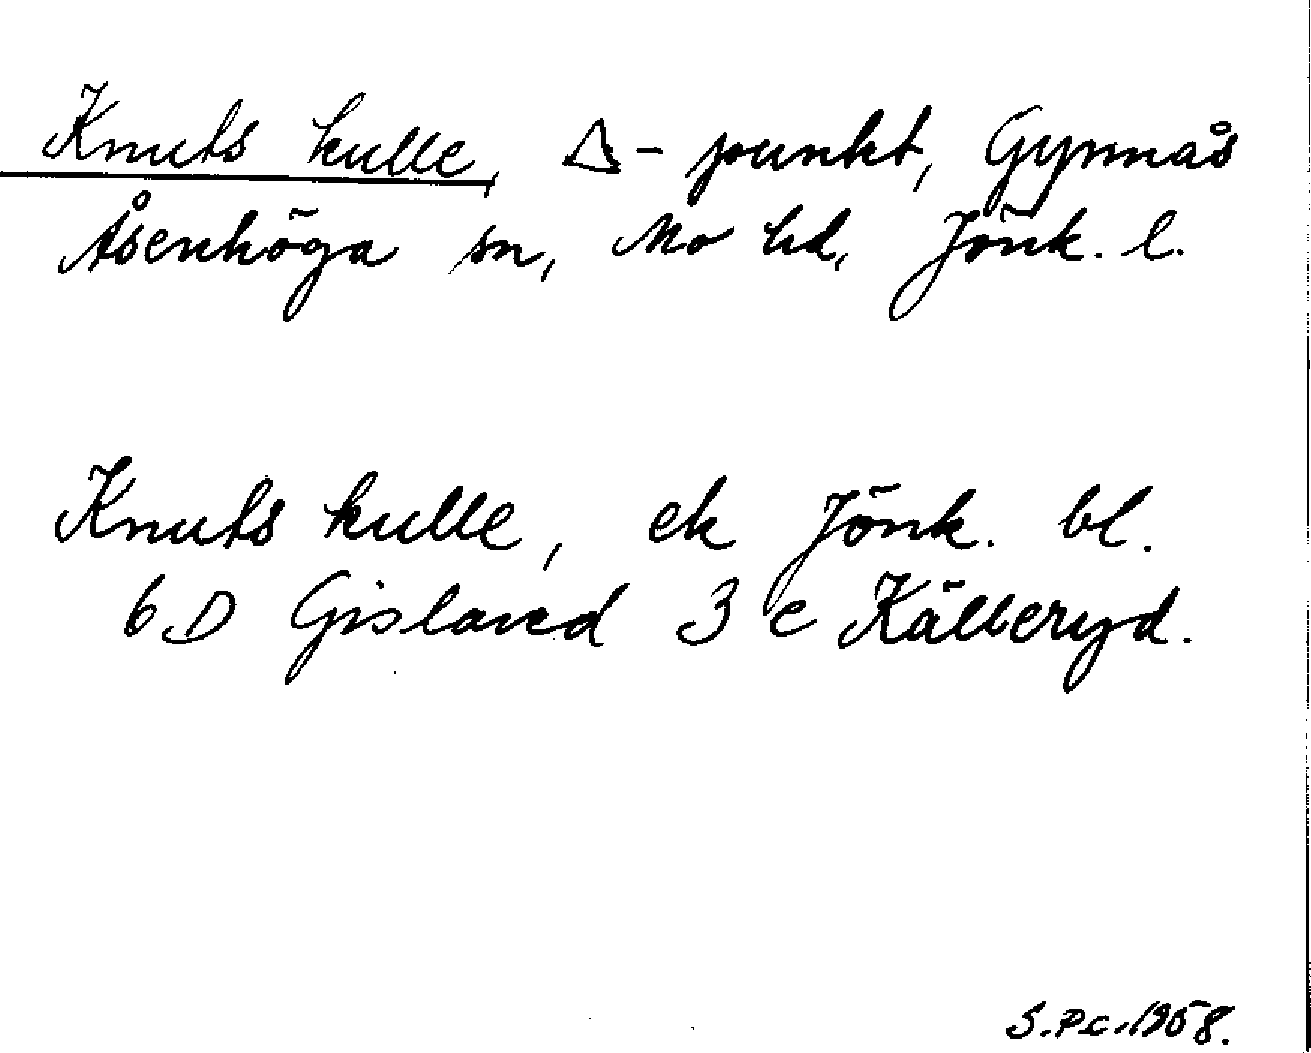 Knuts kulle, Δ-punkt, Gynnås
Åsenhöga sn, Mo hd, Jönk. l.
Knuts kulle, ek Jönk. bl.
6 D Gislaved 3 e Källeryd.
S.P.C. 1958.